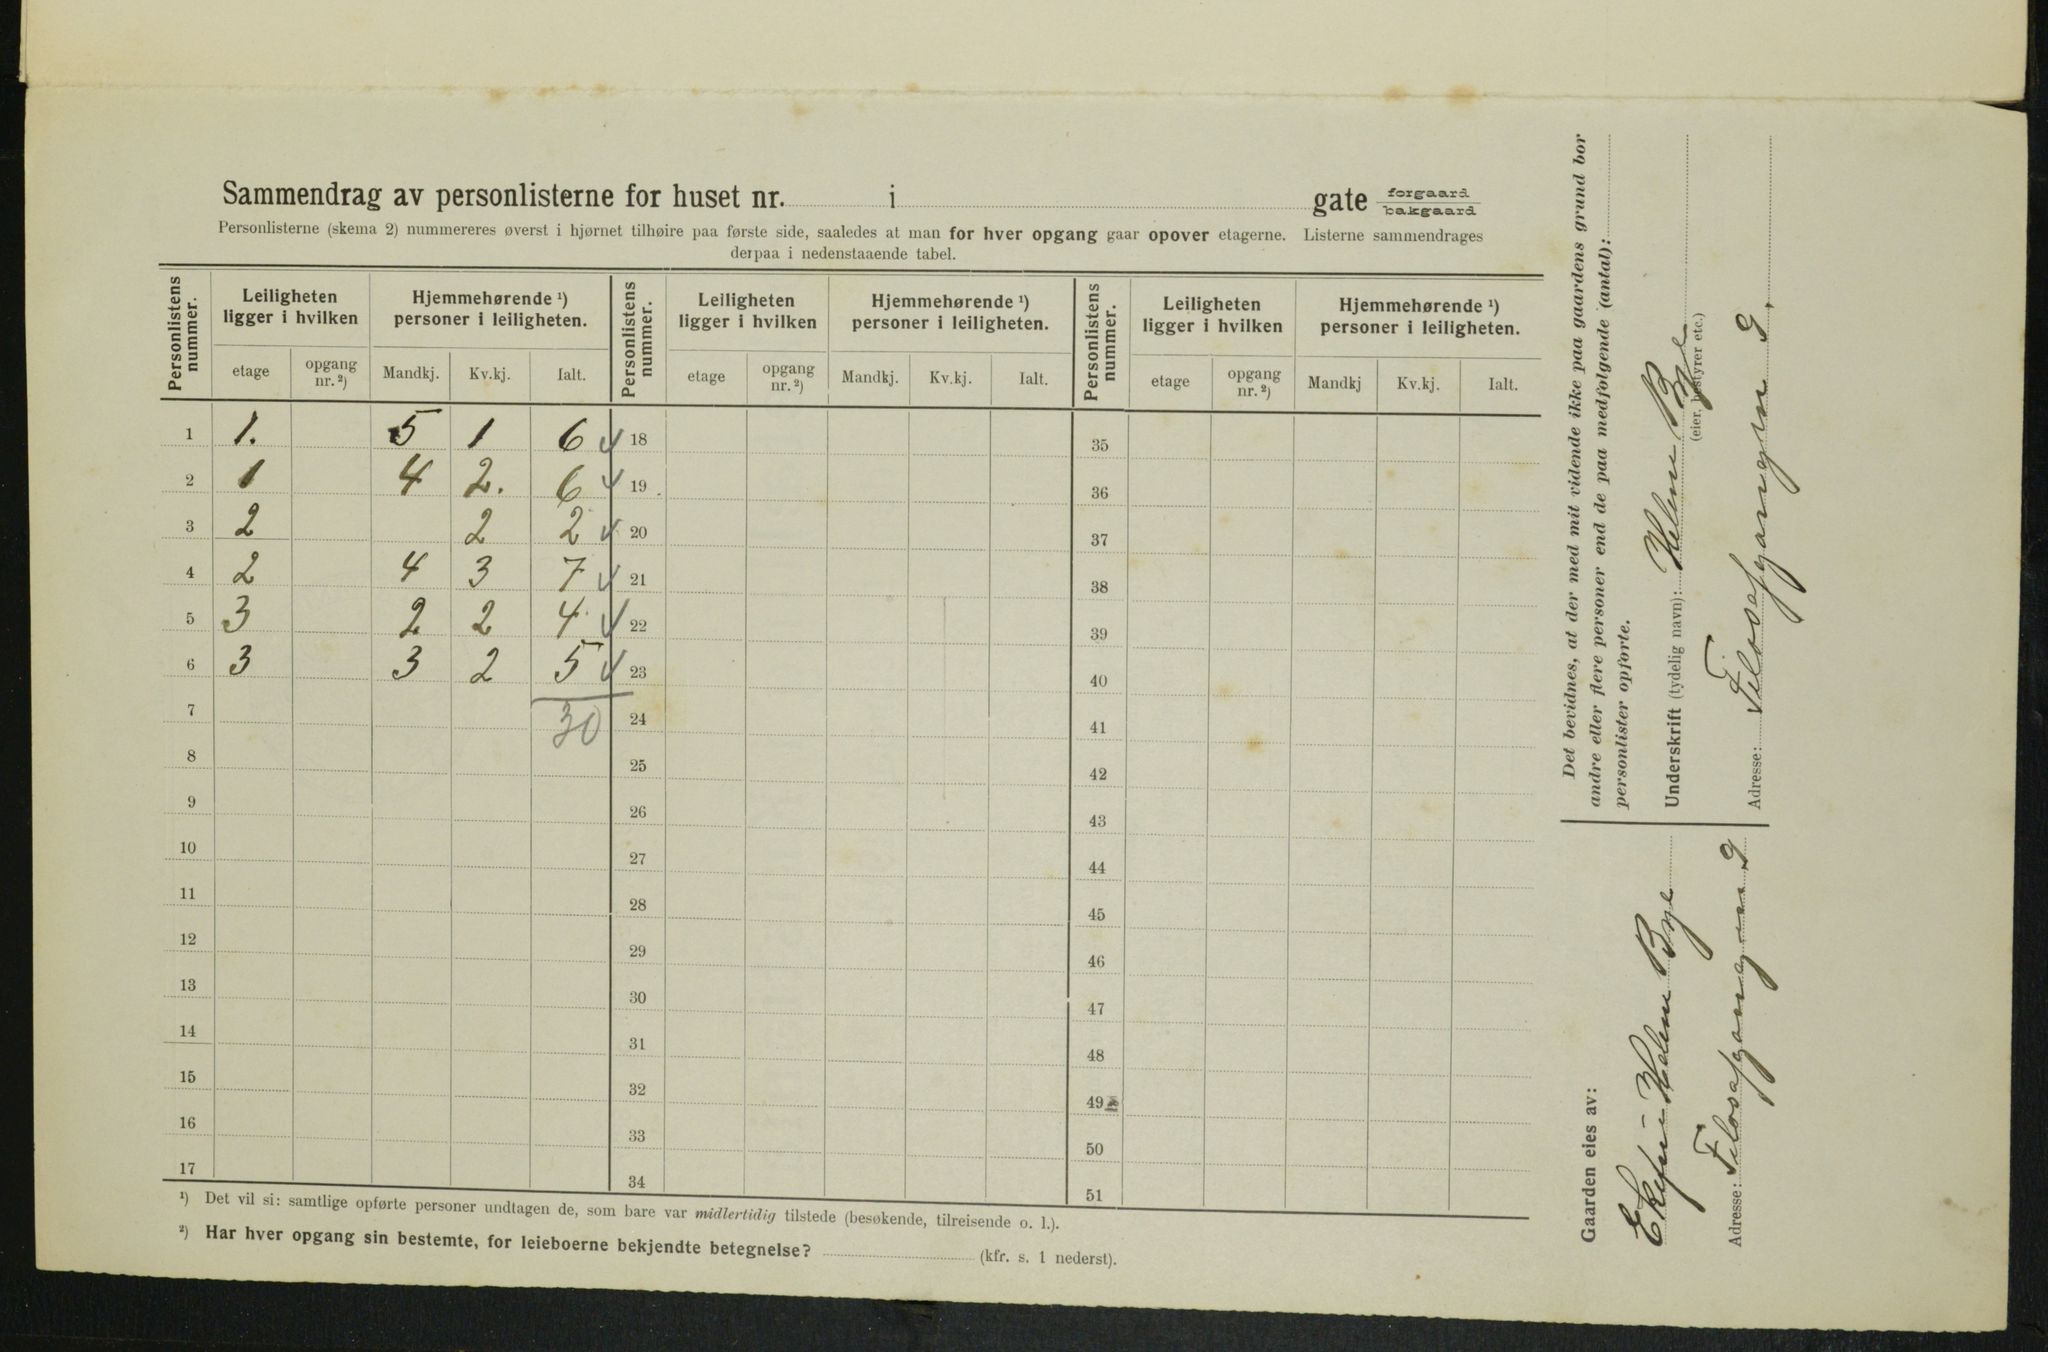 Sammendrag av personlisterne for huset nr. i gate forgaard
bakgaard
Personlisterne (skema 2) nummereres øverst i hjørnet tilhøire paa første side, saaledes at man for hver opgang gaar opover etagerne. Listerne sammendrages
derpaa i nedenstaaende tabel.
Personlistens nummer. Leiligheten ligger i hvilken Hjemmehørende ¹) personer i leiligheten. Personlistens nummer. Leiligheten ligger i hvilken Hjemmehørende ¹) personer i leiligheten. Personlistens nummer. Leiligheten ligger i hvilken Hjemmehørende ¹) personer i leiligheten.
etage opgang nr. ²) Mandkj. Kv.kj. Ialt. etage opgang nr. ²) Mandkj. Kv.kj. Ialt. etage opgang nr. ²) Mandkj Kv.kj. Ialt.
1 1. 5 1 6 18 35
2 1 4 2. 6 19 36
3 2 2 2 20 37
4 2 4 3 7 21 38
5 3 2 2 4 22 39
6 3 3 2 5 23 40
7 30 24 41
8 25 42
9 26 43
10 27 44
11 28 45
12 29 46
13 30 47
14 31 48
15 32 49
16 33 50
17 34 51
¹) Det vil si: samtlige opførte personer undtagen de, som bare var midlertidig tilstede (besøkende, tilreisende o. l.).
²) Har hver opgang sin bestemte, for leieboerne bekjendte betegnelse? (kfr. s. 1 nederst).
Det bevidnes, at der med mit vidende ikke paa gaardens grund bor
andre eller flere personer end de paa medfølgende (antal):
personlister opførte.
Underskrift (tydelig navn): Helen Bye
(eier, bestyrer etc.)
Adresse: Filosofgangen 9.
Gaarden eies av:
Helen Bye
Adresse: Filosofgangen 9